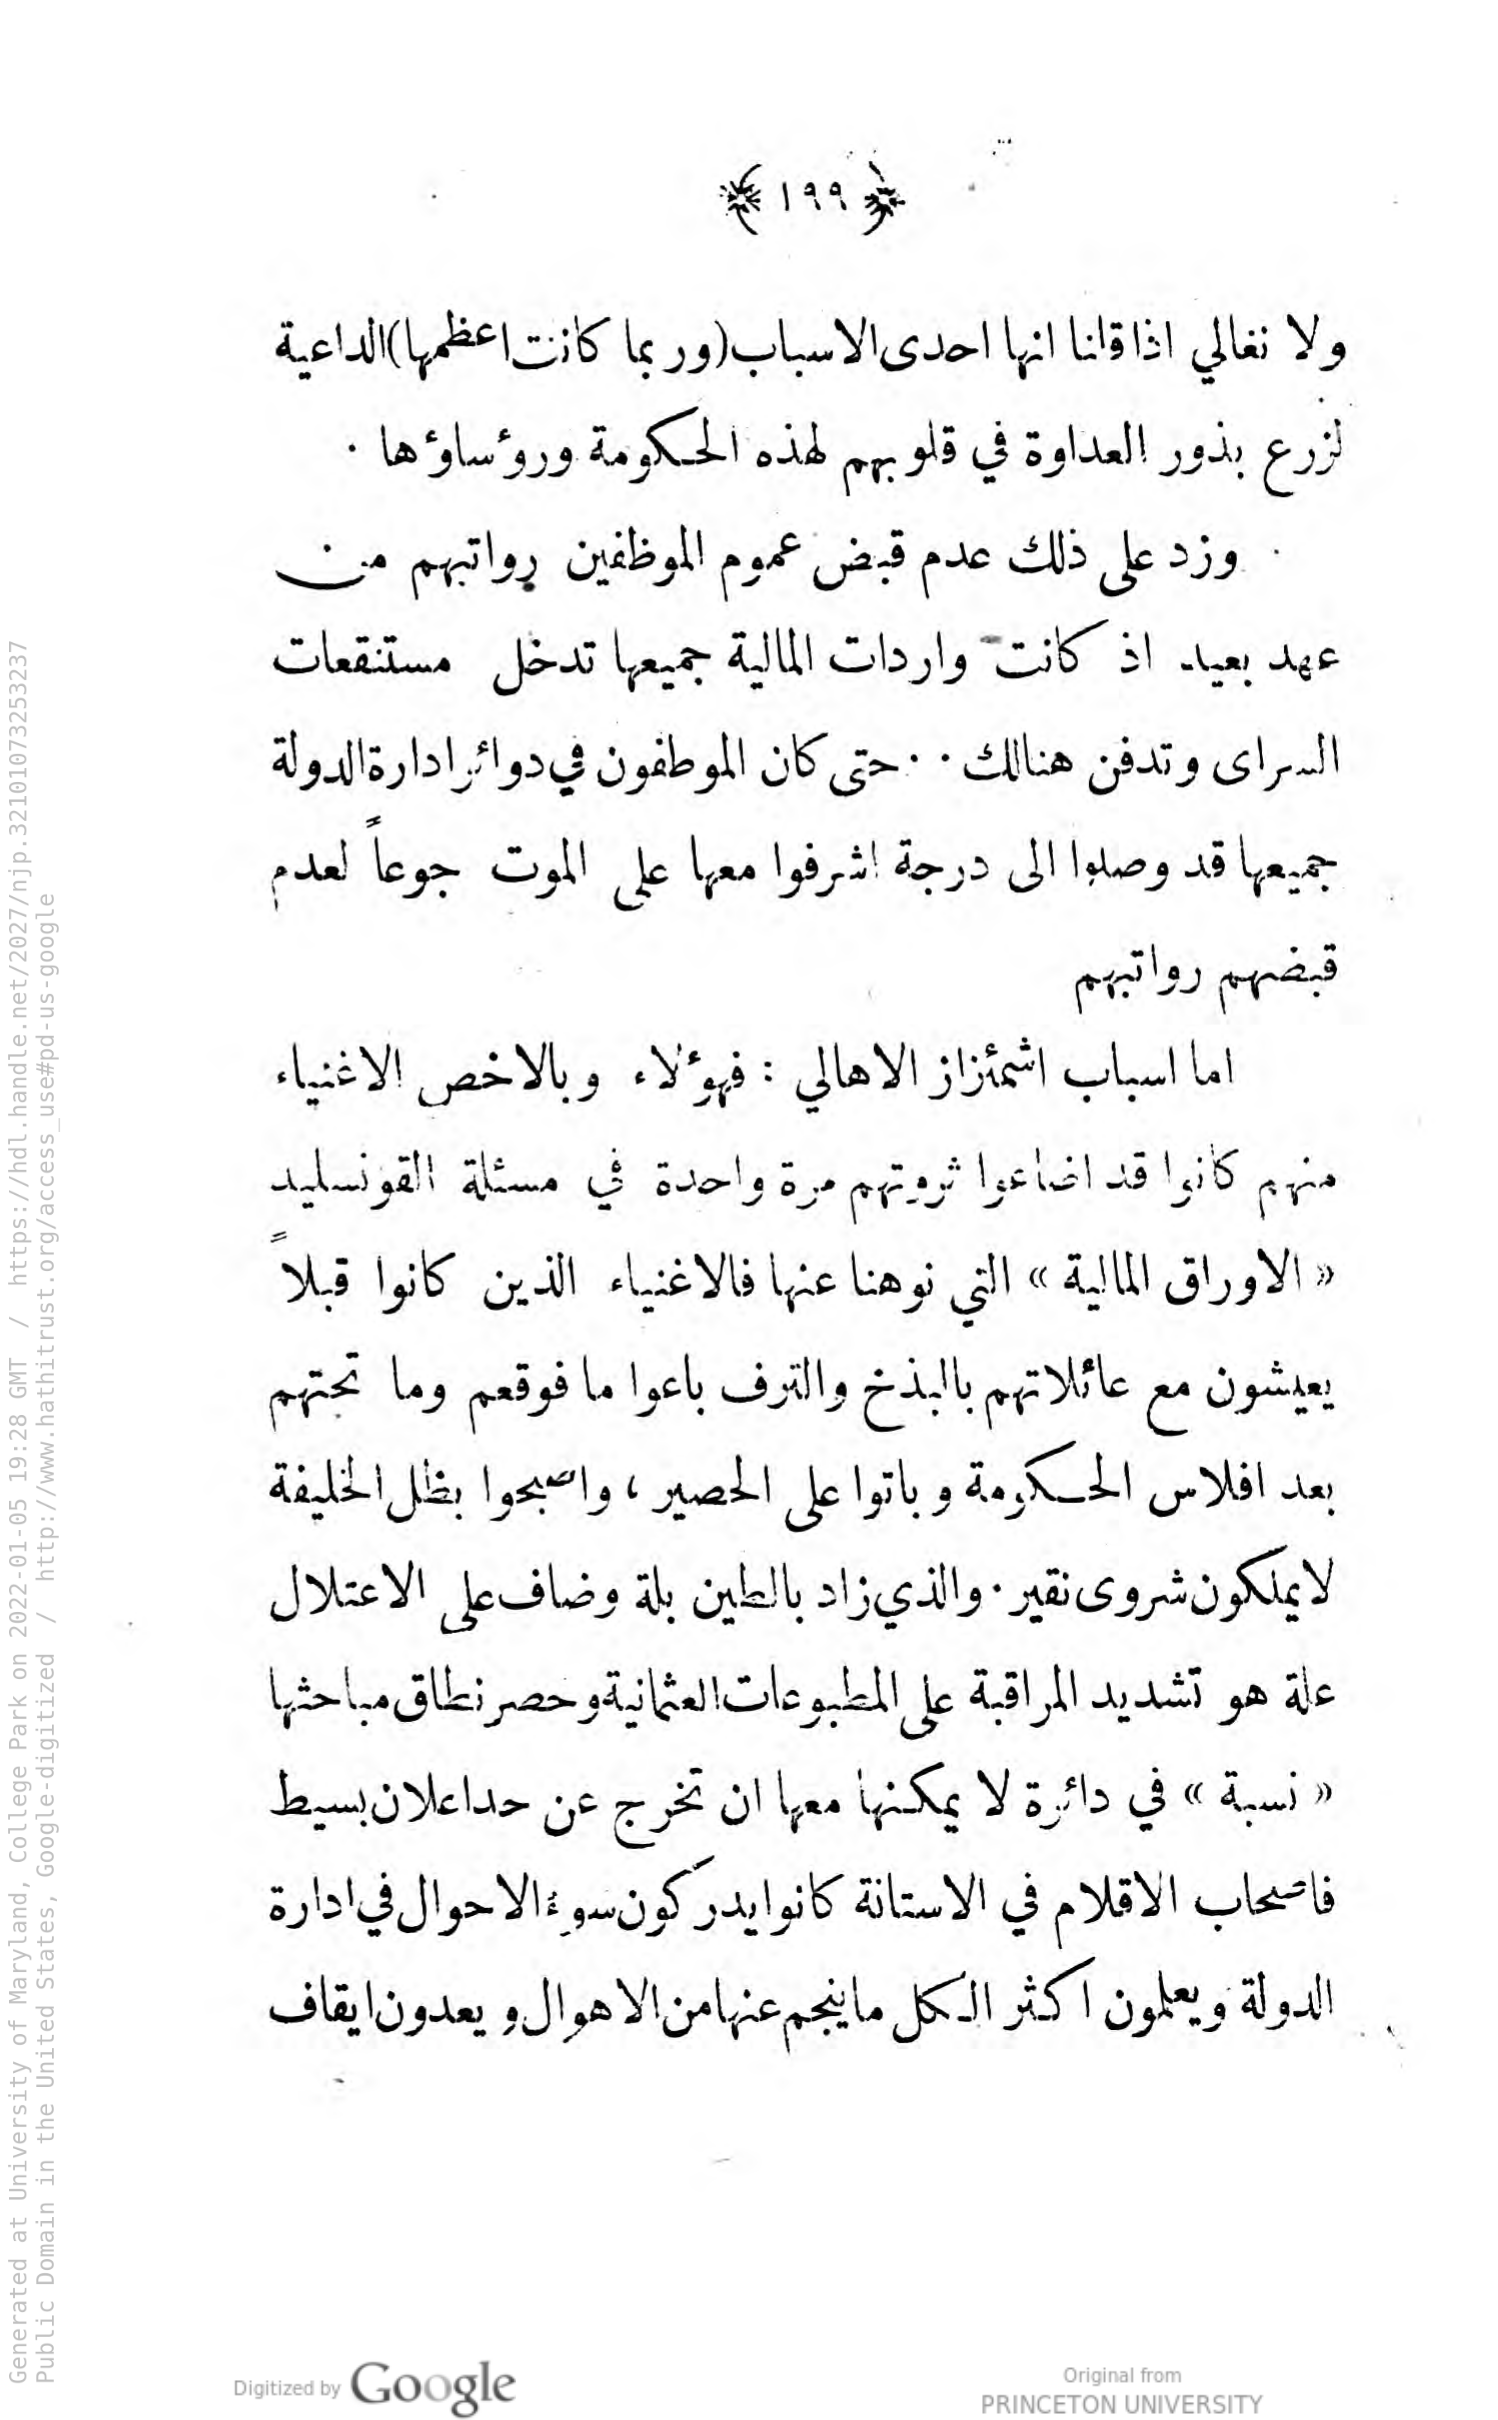 ﴿ ١٩٩ ﴾
ولا نغالي اذا قلنا انها احدى الاسباب (وربما كانت اعظمها) الداعية
لزرع بذور العداوة في قلوبهم لهذه الحكومة وروٴساوٴها ·
وزد على ذلك عدم قبض عموم الموظفين رواتبهم من
عهد بعيد اذ كانت واردات المالية جميعها تدخل مستنقعات
السراى وتدفن هنالك ·· حتى كان الموظفون في دوائر ادارة الدولة
جميعها قد وصلوا الى درجة اشرفوا معها على الموت جوعاً لعدم
قبضهم رواتبهم
اما اسباب اشمئزاز الاهالي : فهوٴلاء وبالاخص الاغنياء
منهم كانوا قد اضاعوا ثروتهم مرة واحدة في مسئلة القونسليد
« الاوراق المالية » التي نوهنا عنها فالاغنياء الذين كانوا قبلاً
يعيشون مع عائلاتهم بالبذخ والترف باعوا ما فوقعم وما تحتهم
بعد افلاس الحكومة وباتوا على الحصير ، واصبحوا بظل الخليفة
لا يملكون شروى نقير · والذي زاد بالطين بلة وضاف على الاعتلال
علة هو تشديد المراقبة على المطبوعات العثمانية وحصر نطاق مباحثها
« نسبة » في دائرة لا يمكنها معها ان تخرج عن حد اعلان بسيط
فاصحاب الاقلام في الاستانة كانوا يدركون سوء الاحوال في ادارة
الدولة ويعلمون اكثر الكل ما ينجم عنها من الاهوال ويعدون ايقاف
Generated at University of Maryland, College Park on 2022-01-05 19:28 GMT / https://hdl.handle.net/2027/njp.32101073253237
Public Domain in the United States, Google-digitized / http://www.hathitrust.org/access_use#pd-us-google
Digitized by Google
Original from
PRINCETON UNIVERSITY